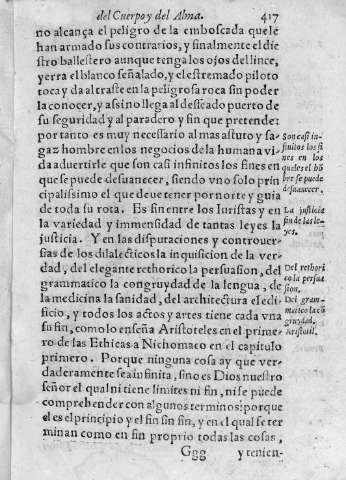 del Cuerpo y del Alma. 417
no alcança el peligro de la emboscada que le
han armado sus contrarios, y finalmente el die
stro ballestero aunque tenga los ojos del lince,
yerra el blanco señalado, y el estremado piloto
toca y da al traste en la peligrosa roca sin poder
la conocer, y assi no llega al desseado puerto de
su seguridad y al paradero y fin que pretende:
por tanto es muy necessario al mas astuto y sa-
gaz hombre en los negocios de la humana vi-
da aduertirle que son casi infinitos los fines en
que se puede desuanecer, siendo vno solo prin
cipalissimo el que deue tener por norte y guia
de toda su rota. Es fin entre los Iuristas y en
la variedad y immensidad de tantas leyes la
justicia. Y en las disputaciones y controuer-
sias de los dilalecticos la inquisicion de la ver-
dad, del elegante rethorico la persuasion, del
grammatico la congruydad de la lengua, de
la medicina la sanidad, del architectura el edi-
ficio, y todos los actos y artes tiene cada vna
su fin, como lo enseña Aristoteles en el prime-
ro de las Ethicas a Nichomaco en el capitulo
primero. Porque ninguna cosa ay que ver-
daderamente sea infinita, sino es Dios nuestro
señor el qual ni tiene limites ni fin, ni se puede
comprehender con algunos terminos: porque
el es el principio y el fin sin fin, y en el qual se ter
minan como en fin proprio todas las cosas,
Ggg y tenien-
Son casi in-
finitos los fi
nes en los
quales el hõ
bre se puede
desuanecer.
La justicia
fin de las le-
yes.
Del rethori
co la persua
sion.
Del gram-
matico la cõ
gruydad.
Aristotil.